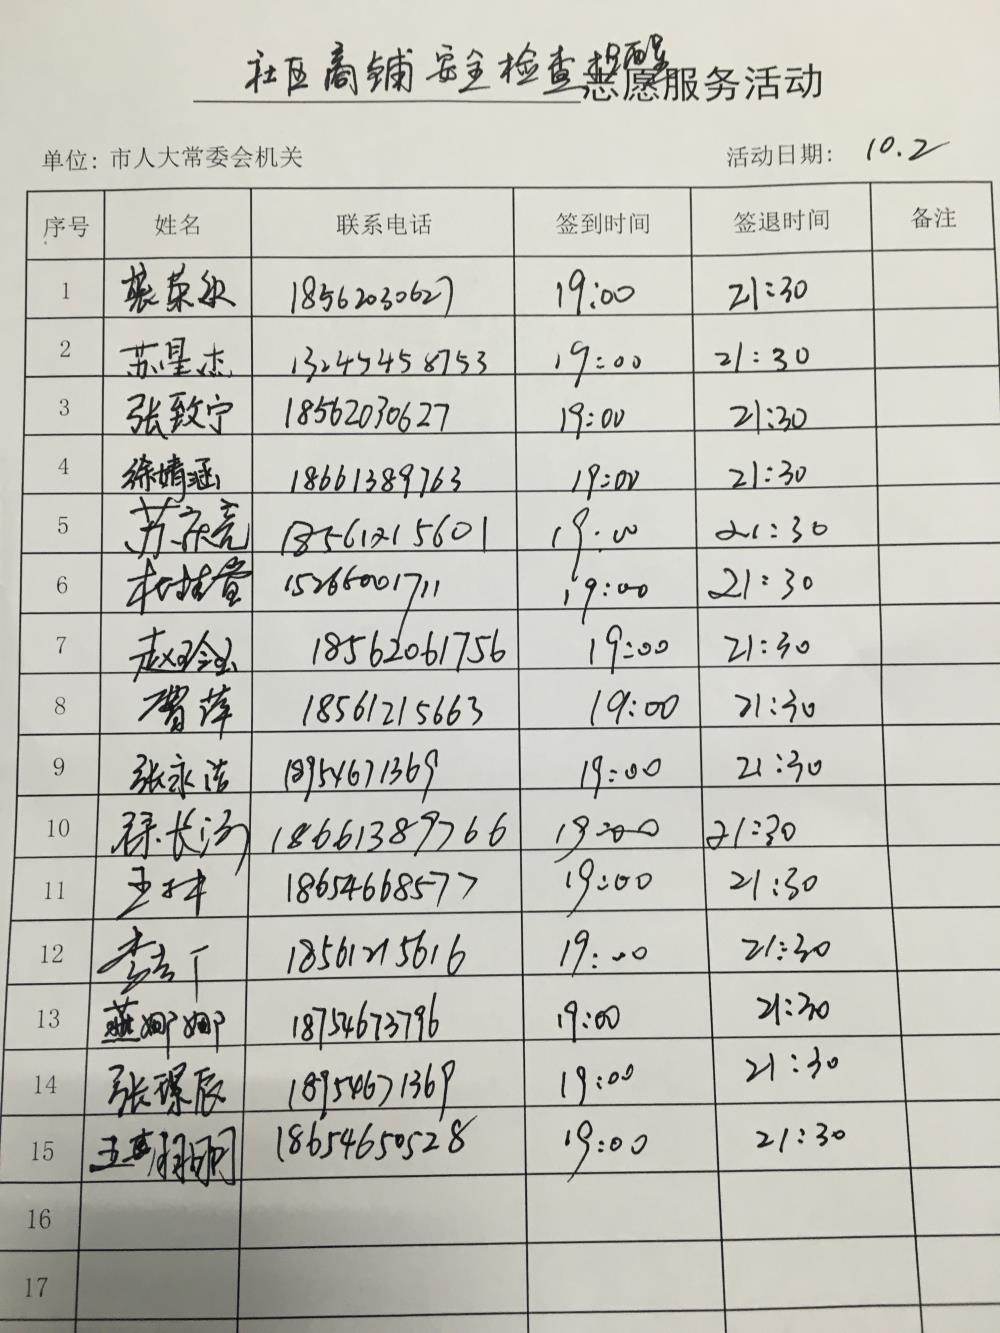 社区商铺安全检查提醒志愿服务活动
单位：市人大常委会机关 活动日期： 10.2
序号 姓名 联系电话 签到时间 签退时间 备注
1 张荣欣 18562030627 19:00 21:30
2 苏星杰 13245458753 19:00 21:30
3 张致宁 18562030627 19:00 21:30
4 徐婧涵 18661389763 19:00 21:30
5 苏亮 18561215601 19:00 21:30
6 15266001711 19:00 21:30
7 赵 18562061756 19:00 21:30
8 贾萍 18561215663 19:00 21:30
9 张永浩 18954671369 19:00 21:30
10 徐长河 18661389766 19:00 21:30
11 王林 18654668577 19:00 21:30
12 李 18561215616 19:00 21:30
13 燕娜娜 18754673796 19:00 21:30
14 张璟辰 18954671369 19:00 21:30
15 王 18654650528 19:00 21:30
16
17